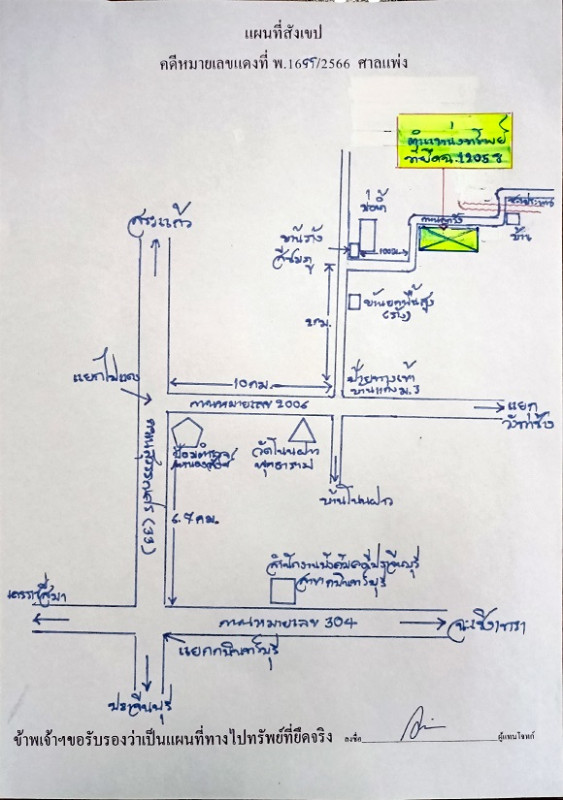 แผนที่สังเขป
คดีหมายเลขแดงที่ พ.1695/2566 ศาลแพ่ง
ตำแหน่งทรัพย์
ที่ยึดฉ.12058
สระแก้ว
บ่อน้ำ
บ้านร้าง
สีชมพู
100ม.
ถนนลูกรัง
บ้าน
บ้านยกพื้นสูง
(ร้าง)
2กม.
แยกไฟแดง
10กม.
ป้ายทางเข้า
บ้านแดง ม.3
ถนนหมายเลข 2006
แยก
วังท่าช้าง
ถนนสุวรรณศร (33)
ป้อมตำรวจ
วัดโนนฝาว
พุทธาราม
บ้านโนนฝาว
6.7กม.
สำนักงานบังคับคดีปราจีนบุรี
สาขากบินทร์บุรี
นครราชสีมา
ถนนหมายเลข 304
ฉะเชิงเทรา
แยกกบินทร์บุรี
ปราจีนบุรี
ข้าพเจ้าฯขอรับรองว่าเป็นแผนที่ทางไปทรัพย์ที่ยึดจริง ลงชื่อ ผู้แทนโจทก์